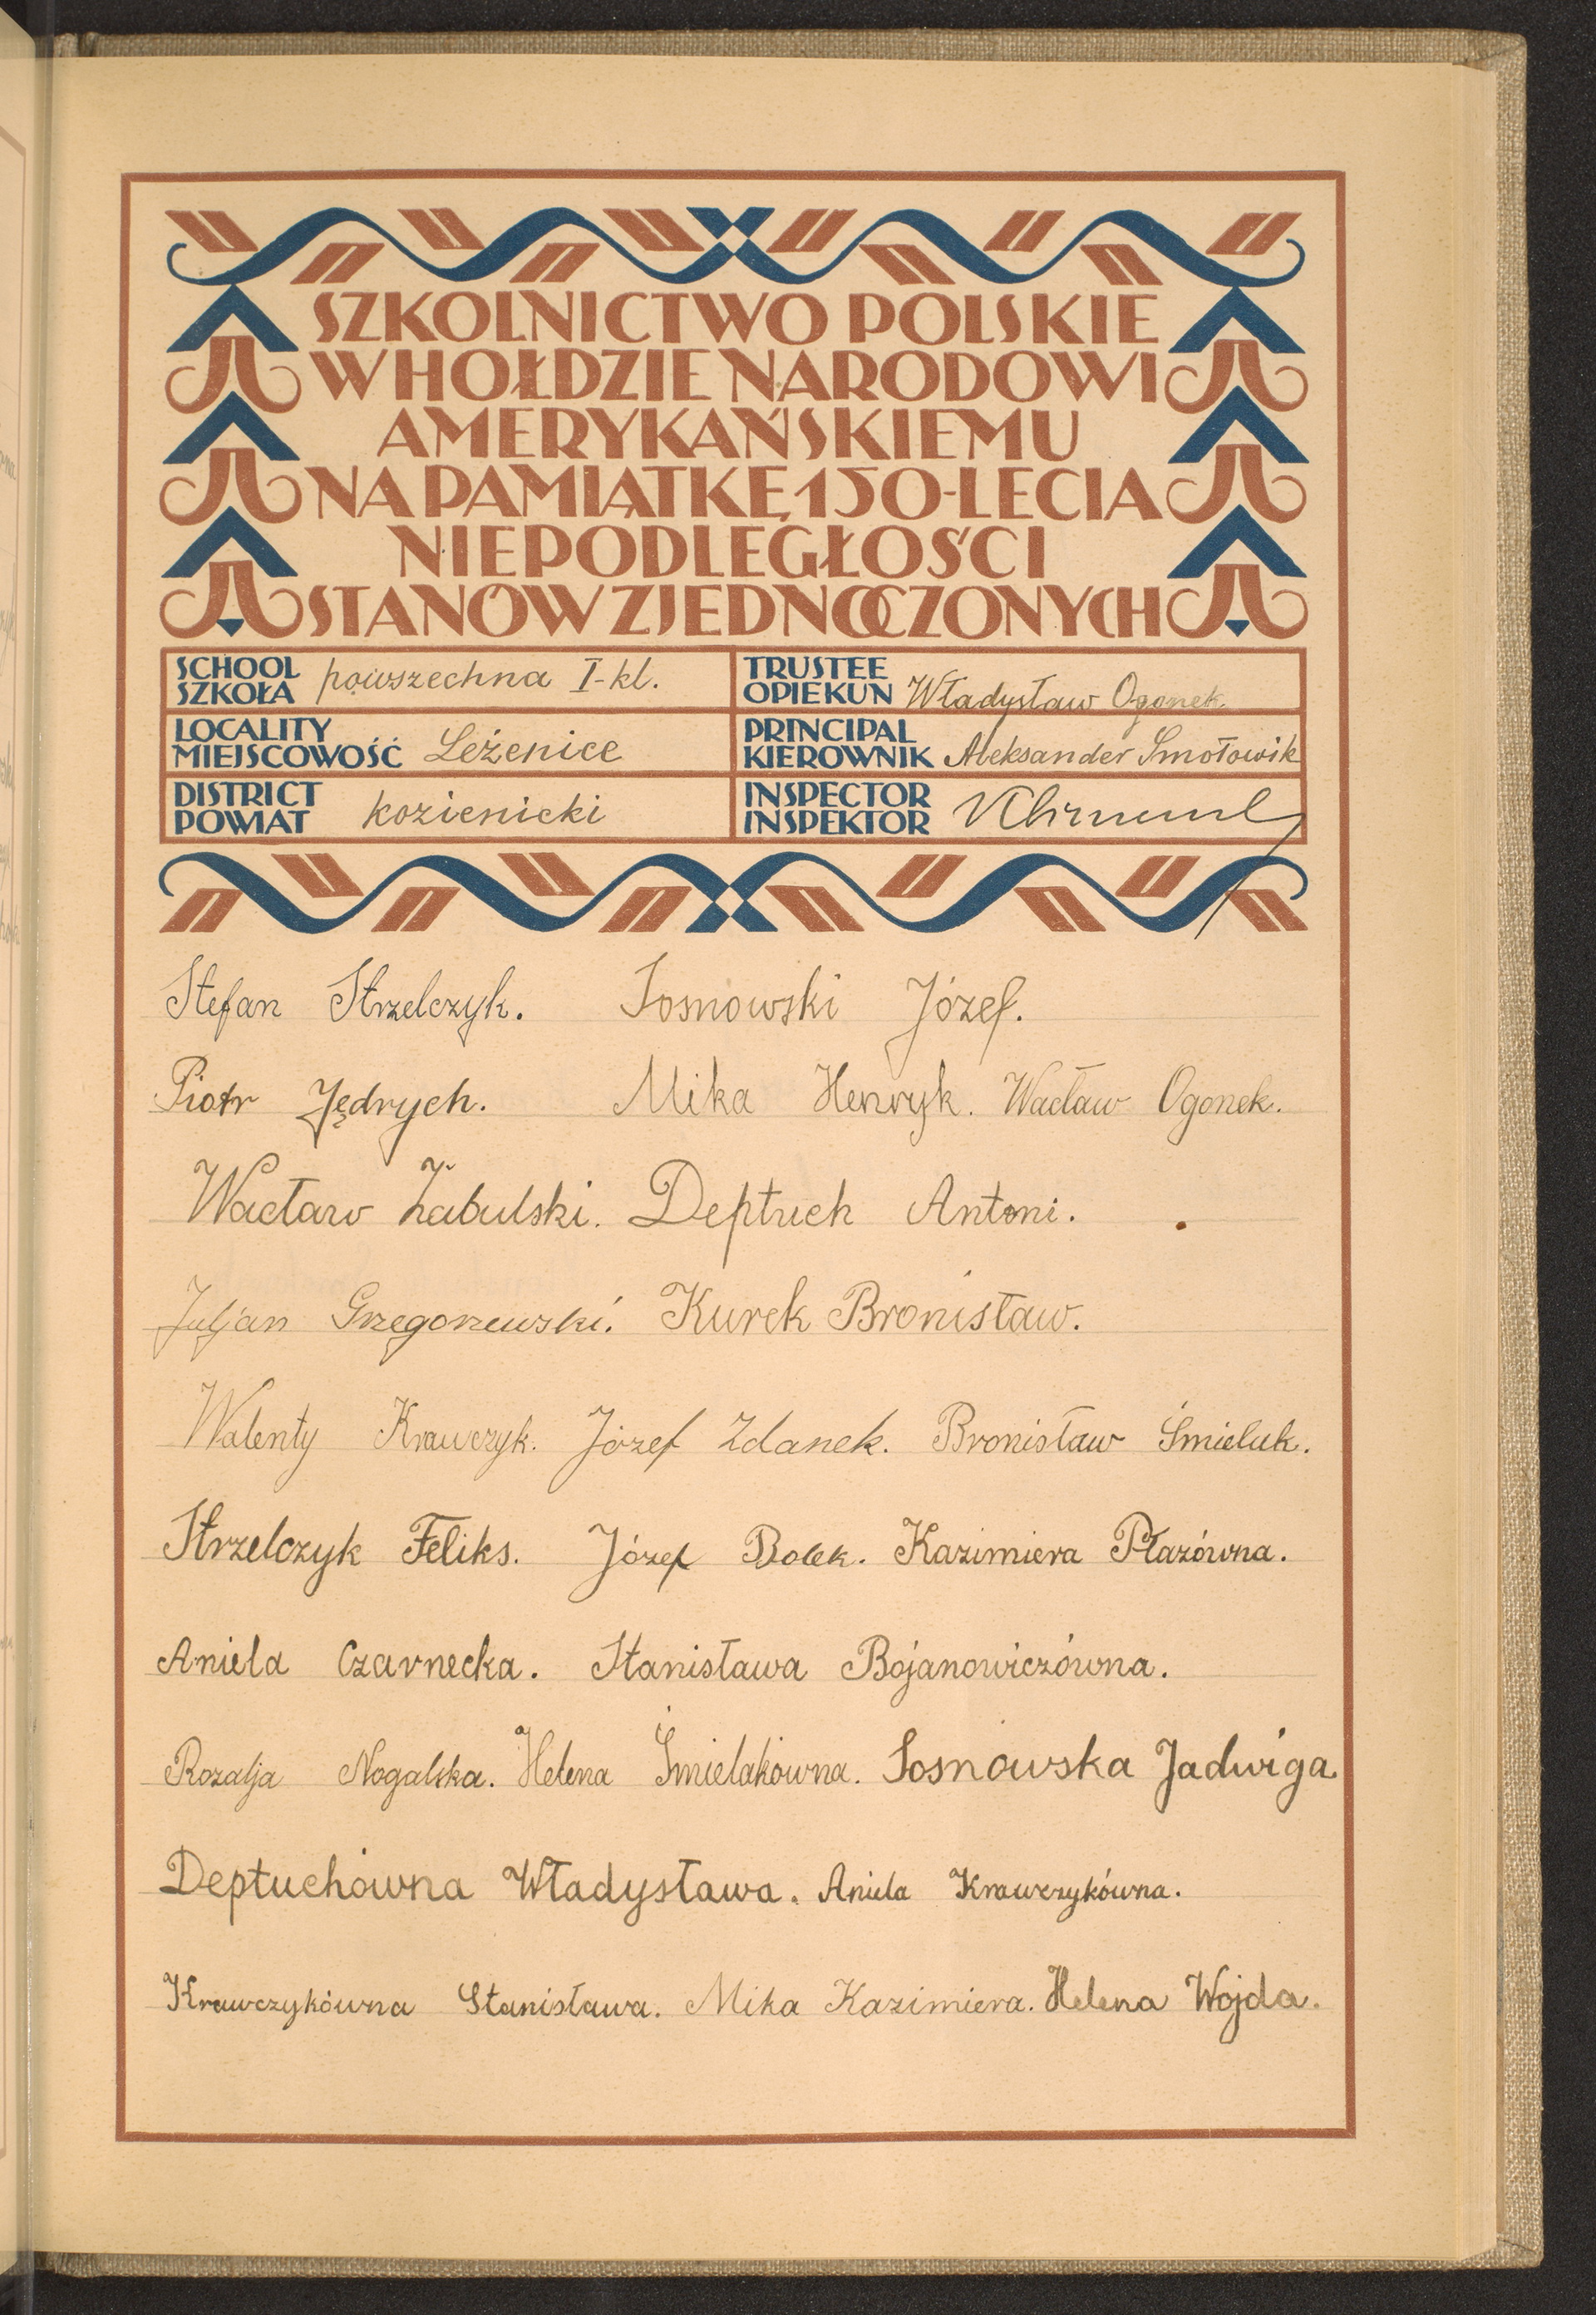 SZKOLNICTWO POLSKIE
W HOŁDZIE NARODOWI
AMERYKAŃSKIEMU
NA PAMIĄTKĘ 150-LECIA
NIEPODLEGŁOŚCI
STANÓW ZJEDNOCZONYCH
SCHOOL
SZKOŁA powszechna I-kl.
TRUSTEE
OPIEKUN Władysław Ogonek
LOCALITY
MIEJSCOWOŚĆ Leżenice
PRINCIPAL
KIEROWNIK Aleksander Smołowik
DISTRICT
POWIAT kozienicki
INSPECTOR
INSPEKTOR
Stefan Strzelczyk. Sosnowski Józef.
Piotr Jędrych. Mika Henryk. Wacław Ogonek.
Wacław Żabulski. Deptuch Antoni.
Juljan Grzegorzewski. Kurek Bronisław.
Walenty Krawczyk. Józef Zdanek. Bronisław Śmieluk.
Strzelczyk Feliks. Józef Bolek. Kazimiera Płazówna.
Aniela Czarnecka. Stanisława Bojanowiczówna.
Rozalja Nogalska. Helena Śmielakówna. Sosnowska Jadwiga
Deptuchówna Władysława. Aniela Krawczykówna.
Krawczykówna Stanisława. Mika Kazimiera. Helena Wojda.